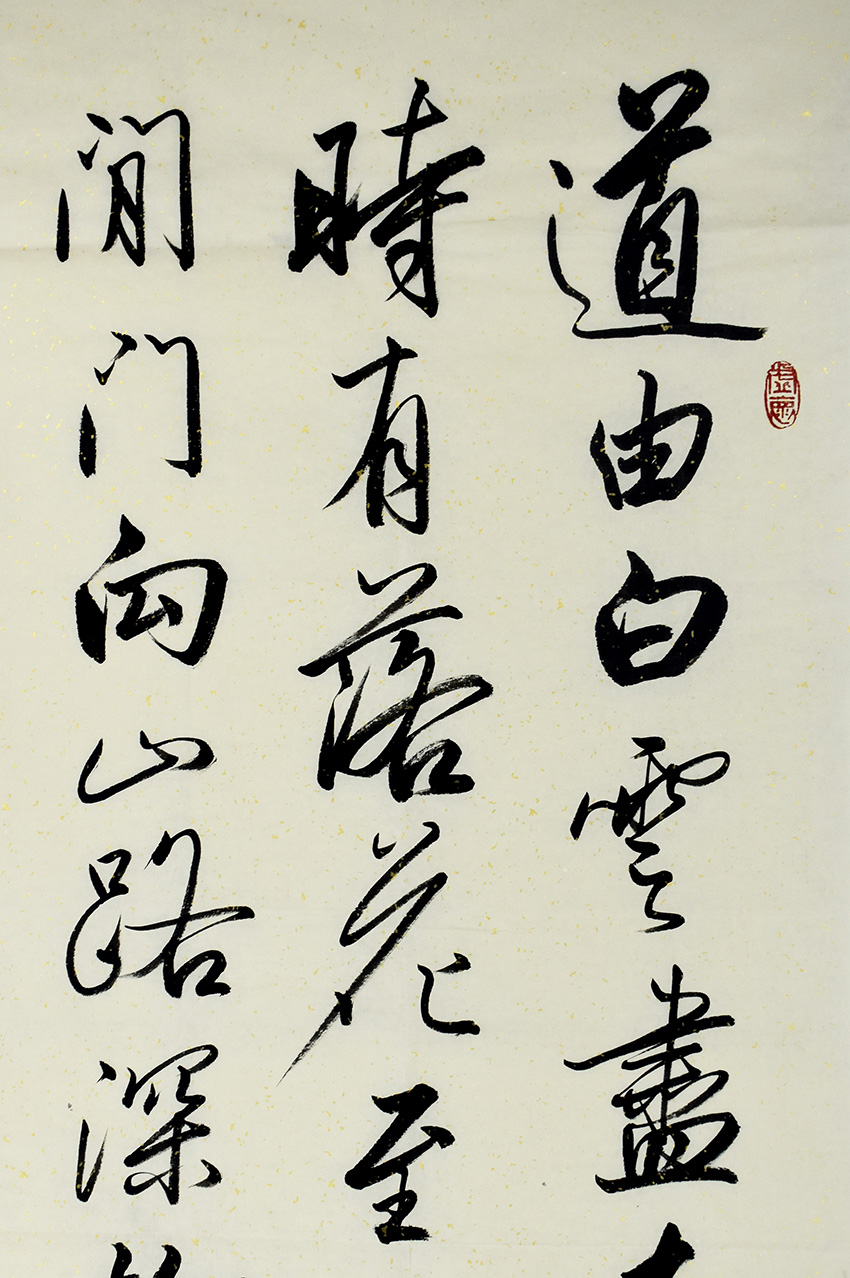 道由白雲盡
時有落花至
閒門向山路深